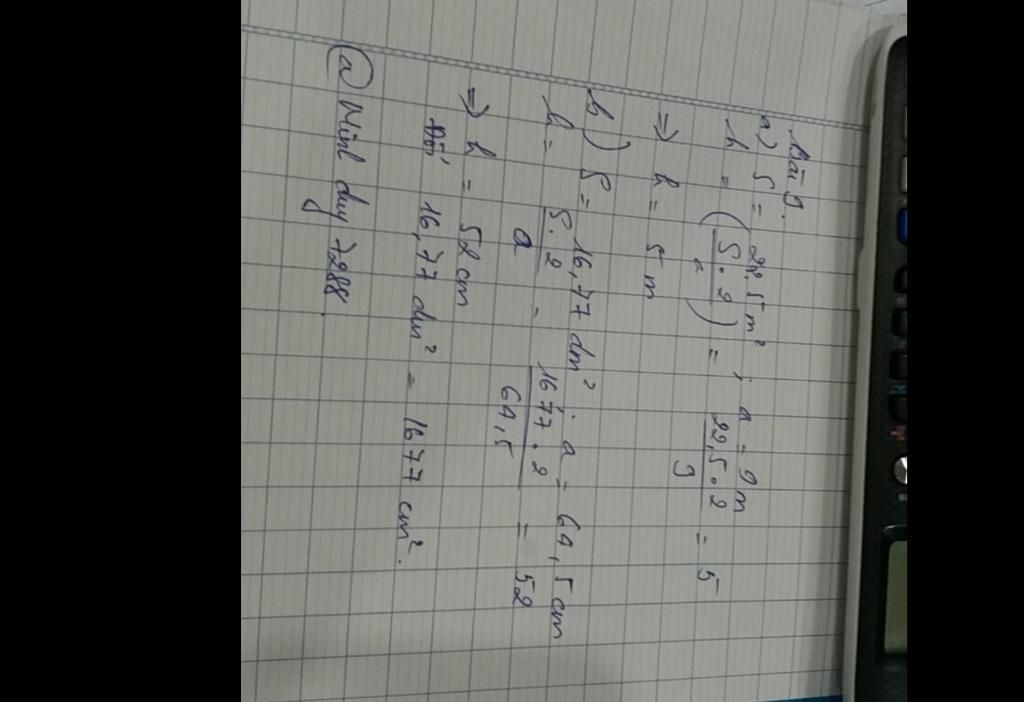 Bài 9.
a) S = 22,5 m² ; a = 9 m
h = (S.2 / a) = 22,5.2 / 9 = 5
=> h = 5 m
b) S = 16,77 dm² ; a = 64,5 cm
h = S.2 / a = 1677.2 / 64,5 = 52
=> h = 52 cm
16,77 dm² = 1677 cm².
@ Minh duy 7288.